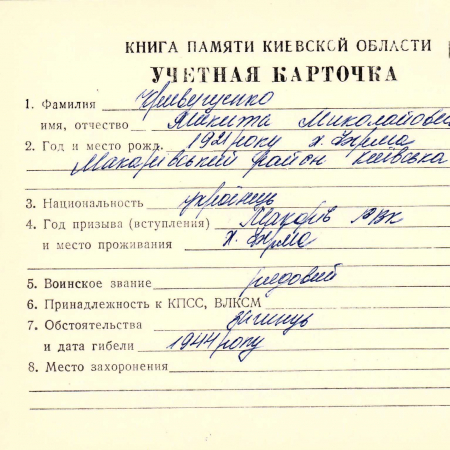 КНИГА ПАМЯТИ КИЕВСКОЙ ОБЛАСТИ
УЧЕТНАЯ КАРТОЧКА
1. Фамилия
имя, отчество Микита Миколайович
2. Год и место рожд. 1921 року х. Юрма
Макарівський район Київська
3. Национальность українець
4. Год призыва (вступления) Макарів РВК
и место проживания х. Юрма
5. Воинское звание рядовий
6. Принадлежность к КПСС, ВЛКСМ
7. Обстоятельства загинув
и дата гибели 1944 року
8. Место захоронения